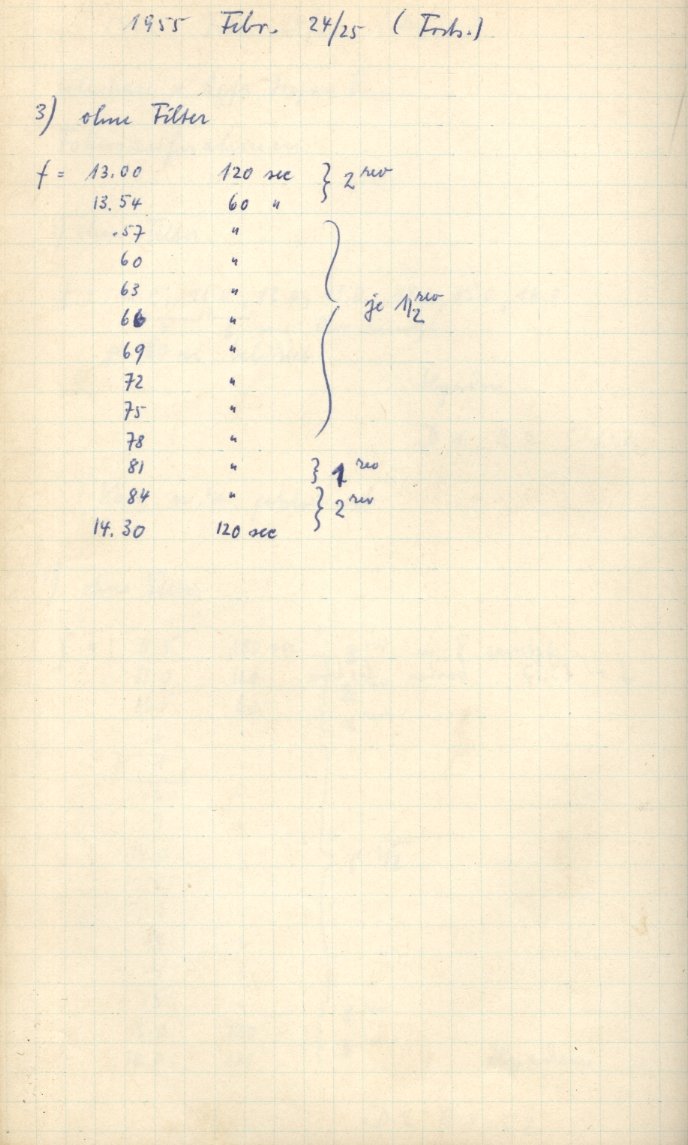 1955 Febr. 24/25 (Forts.)
3) ohne Filter
f = 13.00 120 sec } 2 rev
13.54 60 "
.57 "
60 "
63 "
66 " je 1/2 rev
69 "
72 "
75 "
78 "
81 " } 1 rev
84 " } 2 rev
14.30 120 sec